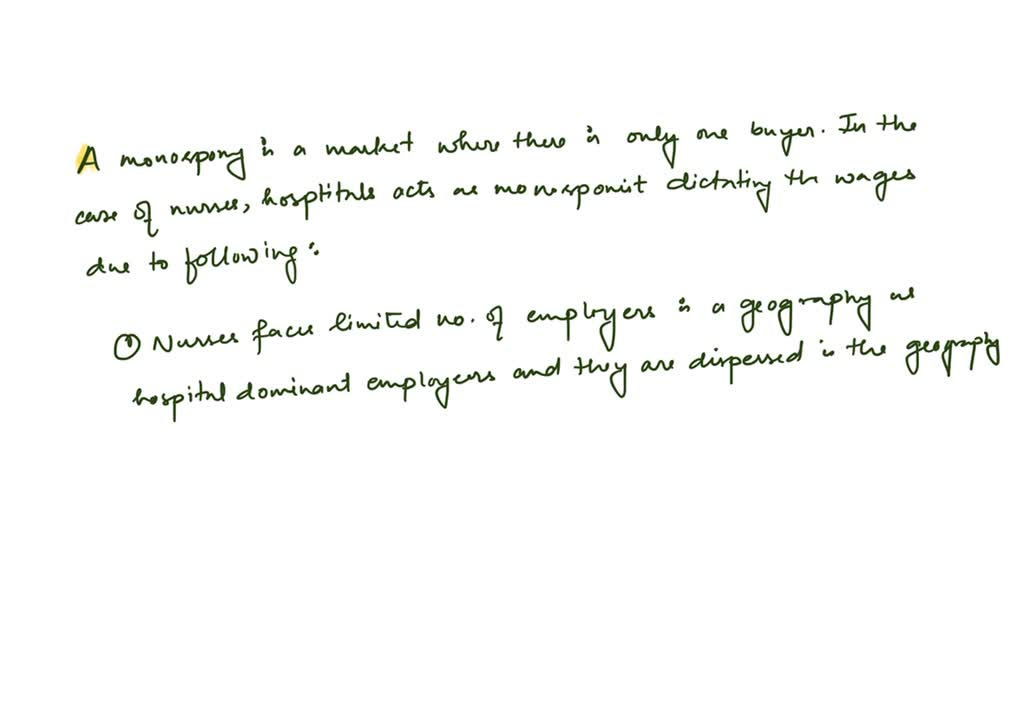 A monospony is a market where there is only one buyer. In the
case of nurses, hosptitals acts as monosponist dictating the wages
due to following:
① Nurses faces limited no. of employers is a geography as
hospital dominant employers and they are dispersed in the geography